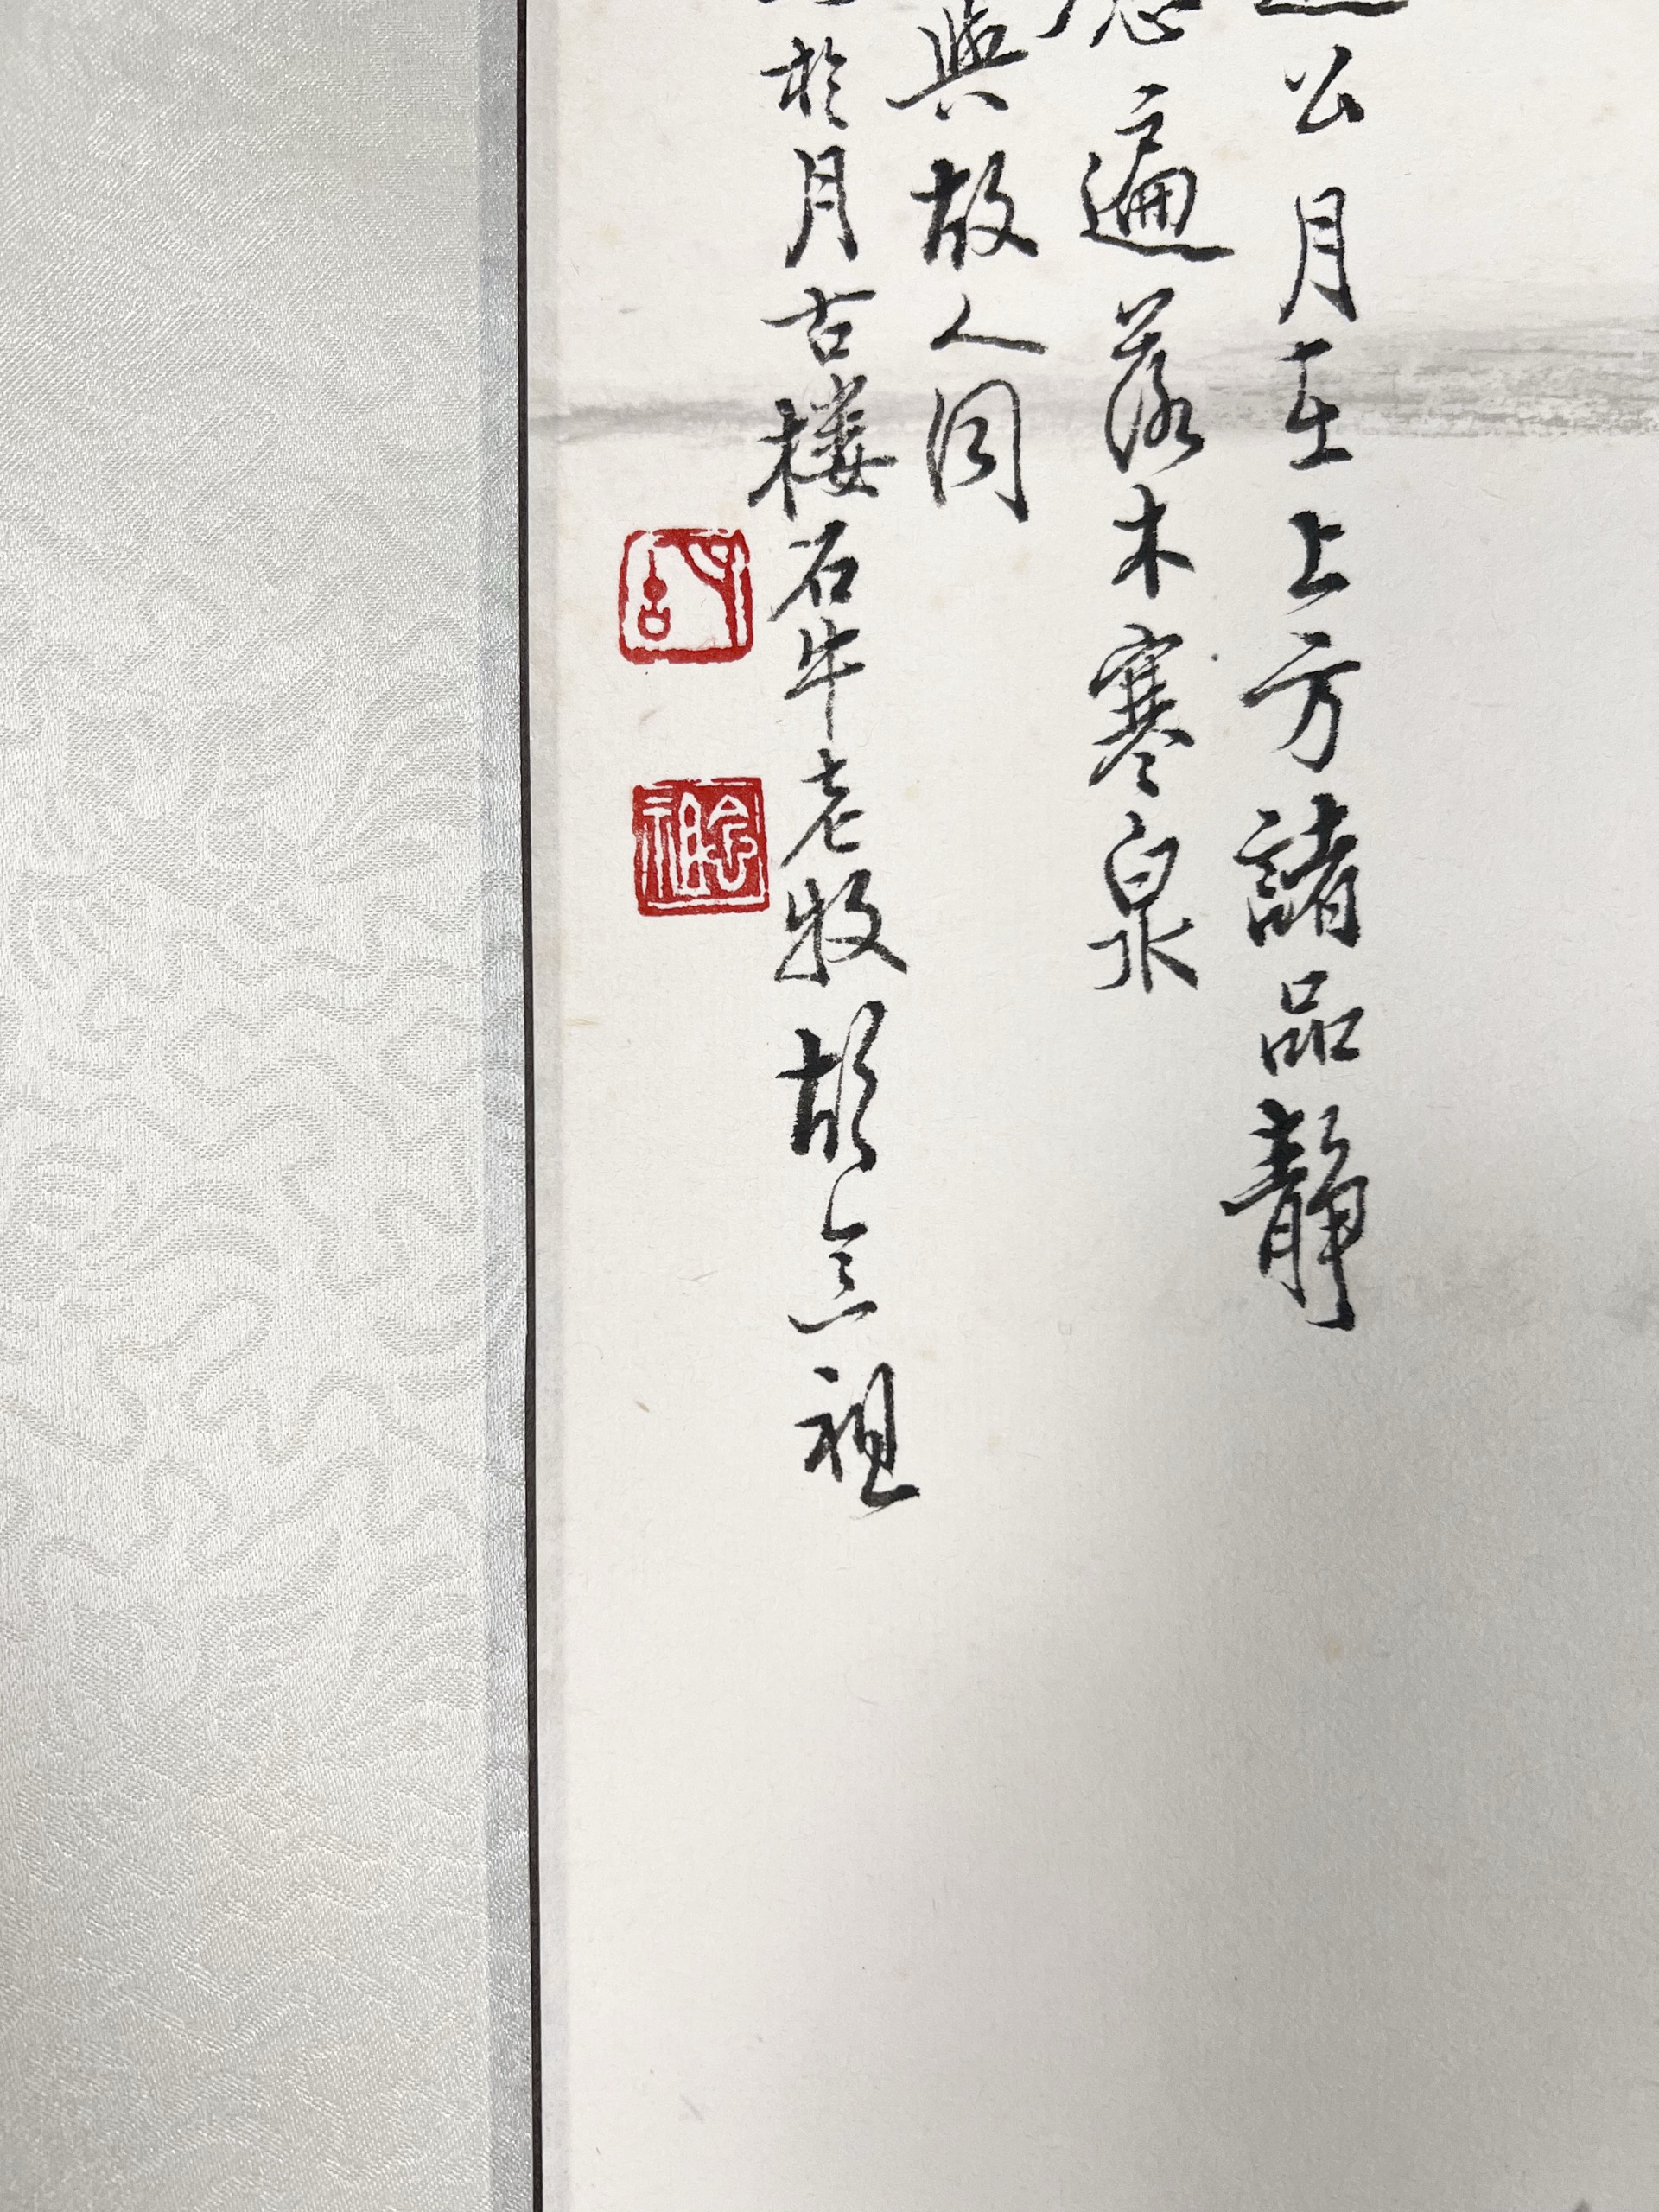 公月在上方諸品靜
應遍落木寒泉
與故人同
於月古楼石牛老牧胡念祖